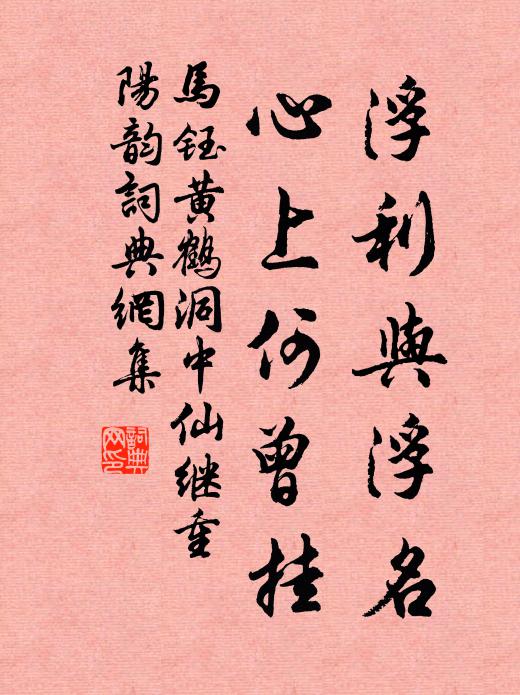 浮利與浮名
心上何曾挂
馬鈺黄鶴洞中仙继重
陽韵詞典網集
詞典
网印